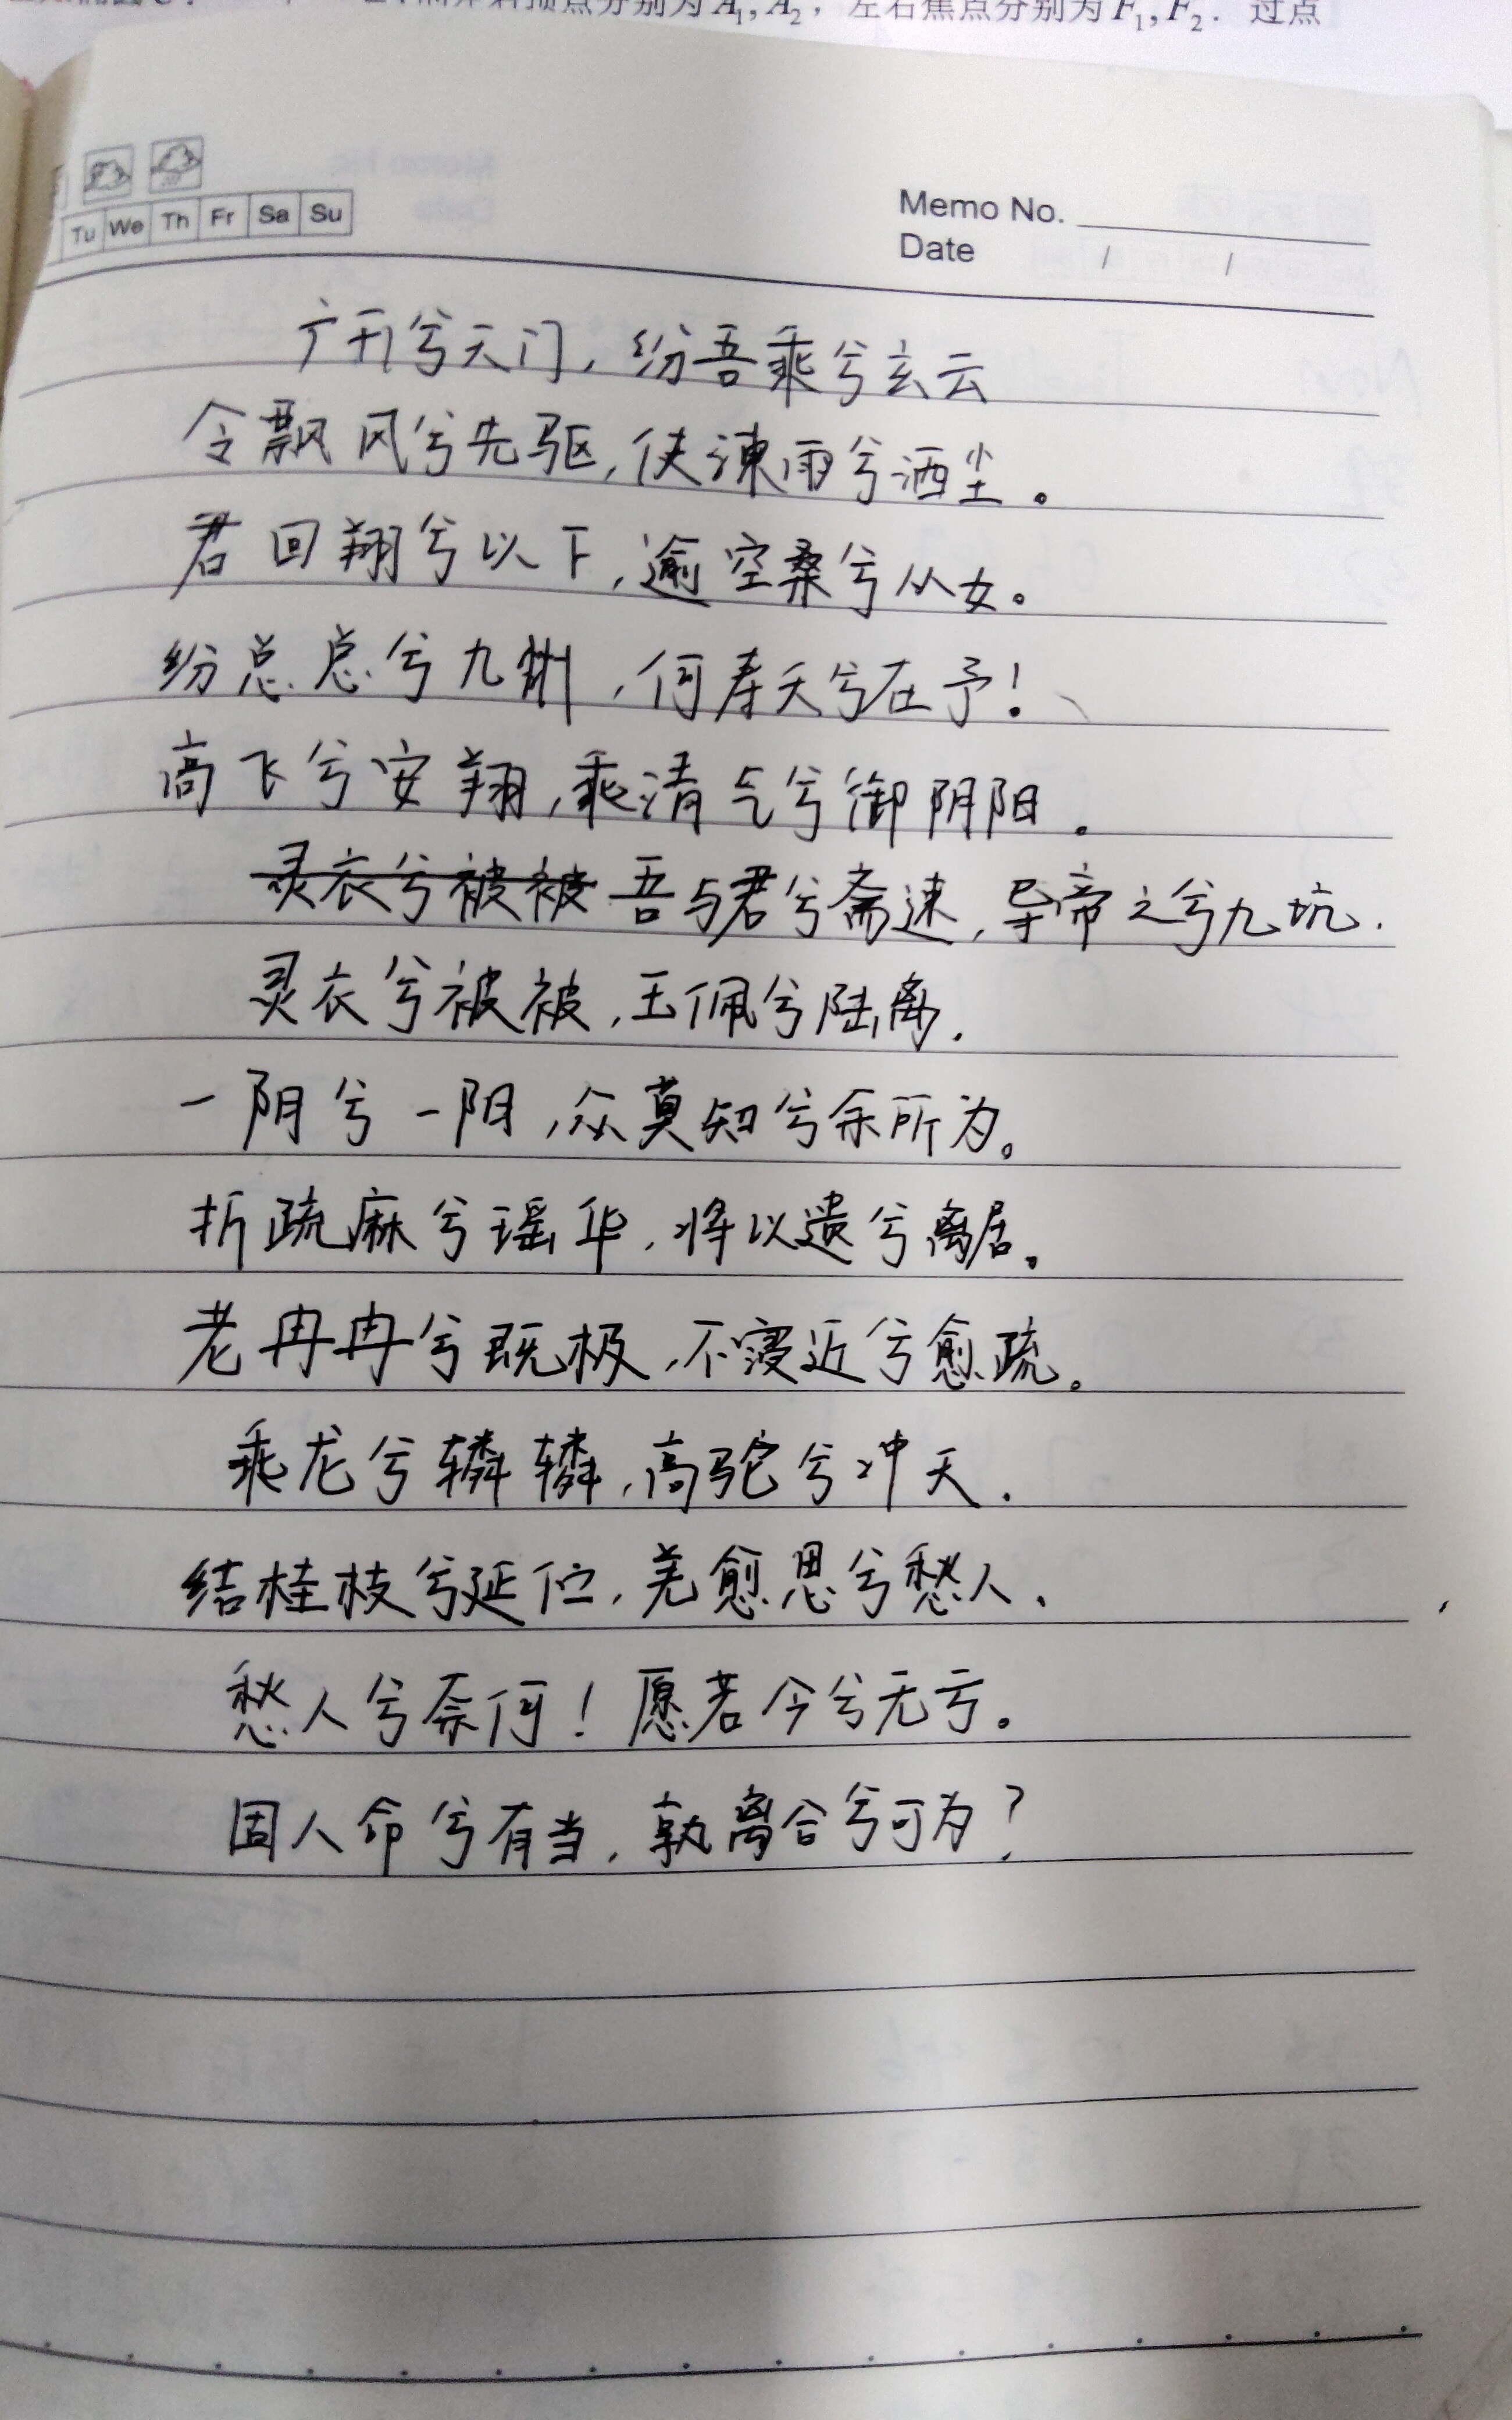 左右顶点分别为A₁,A₂，左右焦点分别为F₁,F₂．过点
Tu We Th Fr Sa Su
Memo No.
Date / /
广开兮天门，纷吾乘兮玄云
令飘风兮先驱，使涷雨兮洒尘。
君回翔兮以下，逾空桑兮从女。
纷总总兮九州，何寿夭兮在予！
高飞兮安翔，乘清气兮御阴阳．
灵衣兮被被 吾与君兮斋速，导帝之兮九坑．
灵衣兮被被，玉佩兮陆离．
一阴兮一阳，众莫知兮余所为。
折疏麻兮瑶华，将以遗兮离居。
老冉冉兮既极，不寖近兮愈疏。
乘龙兮辚辚，高驼兮冲天．
结桂枝兮延伫，羌愈思兮愁人．
愁人兮奈何！愿若今兮无亏。
固人命兮有当，孰离合兮可为？